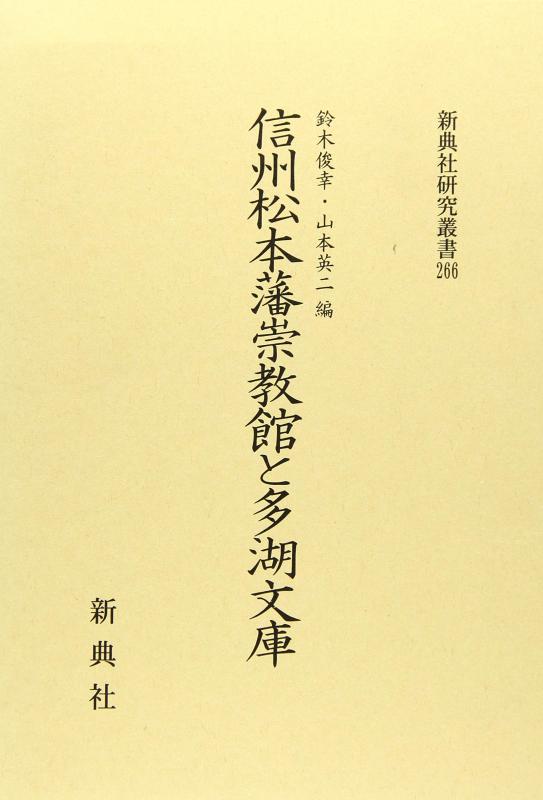 新典社研究叢書266
鈴木俊幸・山本英二 編
信州松本藩崇教館と多湖文庫
新典社